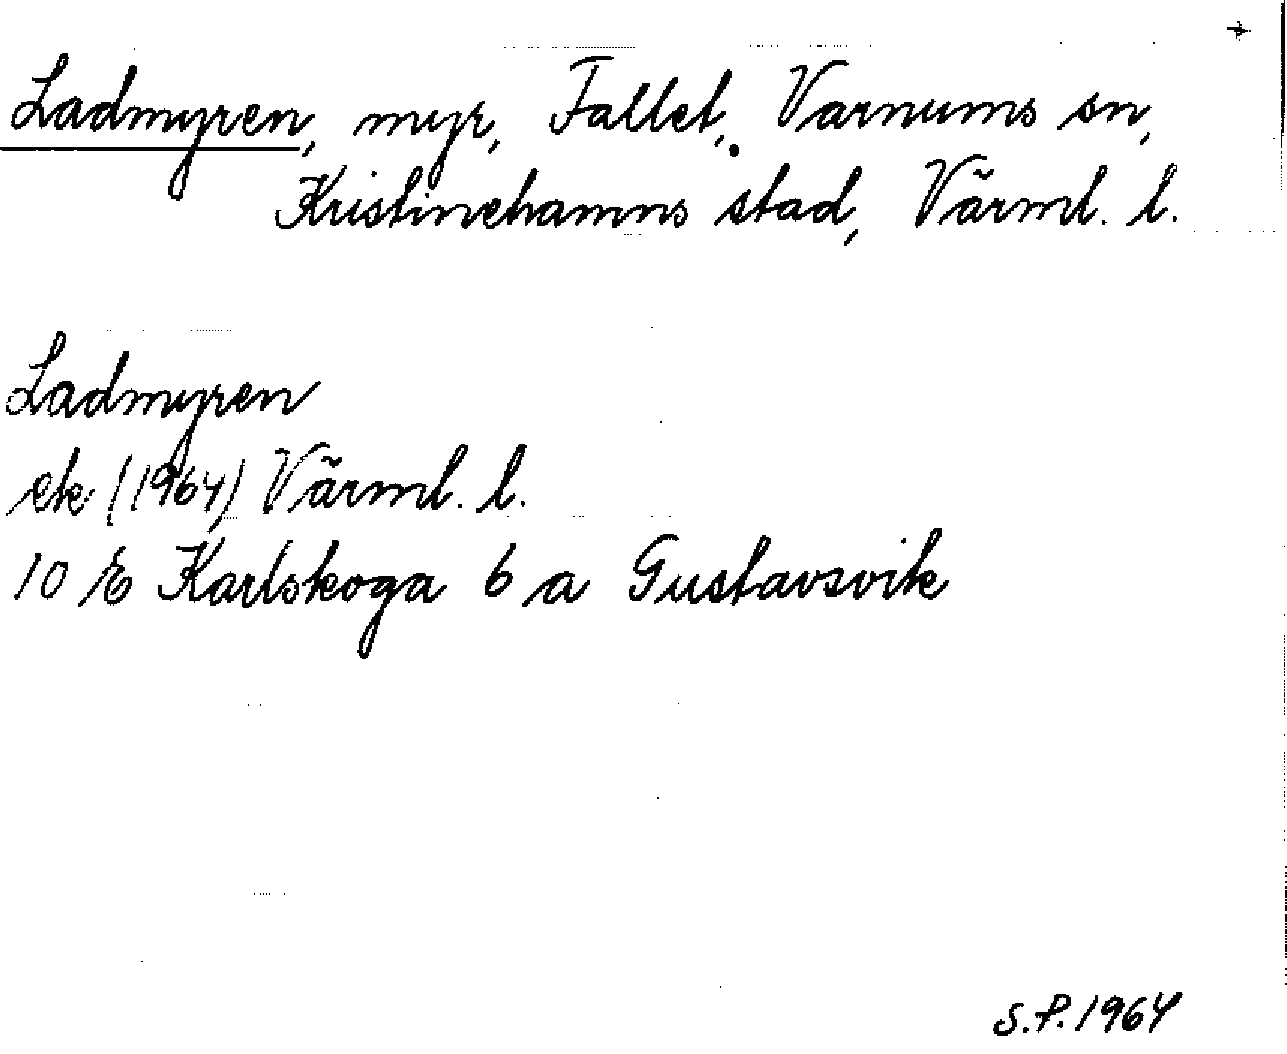 Ladmyren, myr, Fallet, Varnums sn,
Kristinehamns stad, Värml. l.
Ladmyren
ek (1964) Värml. l.
10 E Karlskoga 6 a Gustavsvik
S.P. 1964